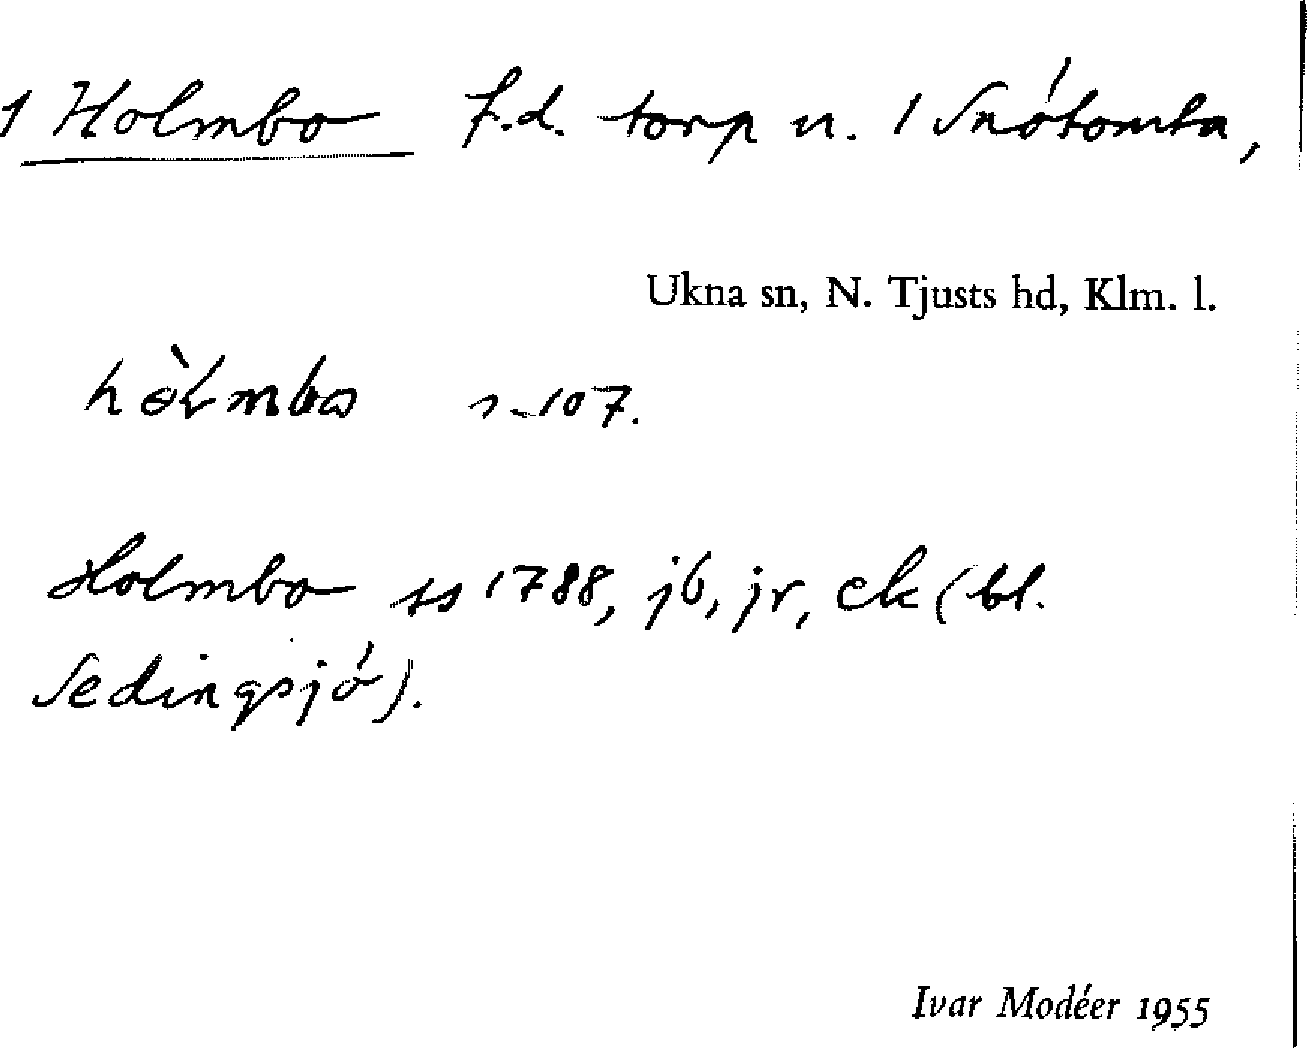 1 Holmbo f.d. torp u. 1 Snötomta,
Ukna sn, N. Tjusts hd, Klm. l.
107.
Holmbo ss 1788, jb, jr, ek (bl.
Sedingsjö).
Ivar Modéer 1955